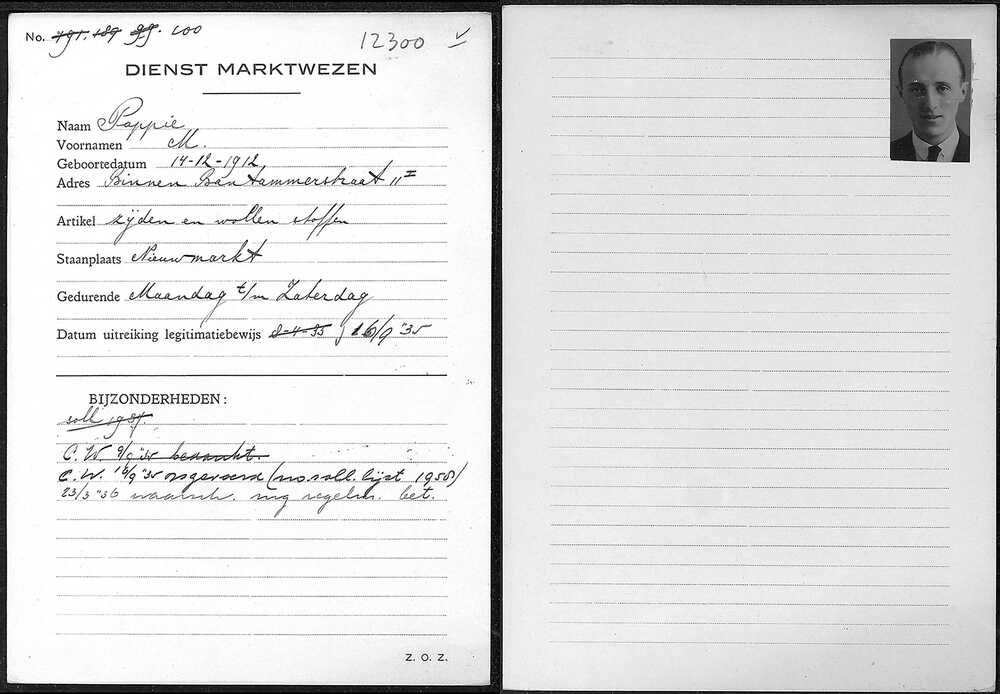 No. 191. 189 99. 100
12300
DIENST MARKTWEZEN
Naam Pappie
Voornamen M.
Geboortedatum 14-12-1912
Adres Binnen Bantammerstraat 11 I
Artikel zijden en wollen stoffen
Staanplaats Nieuwmarkt
Gedurende Maandag t/m Zaterdag
Datum uitreiking legitimatiebewijs 2-4-35 16/9 '35
BIJZONDERHEDEN:
soll 1937.
C. W. 9/9 '35 bedankt.
C. W. 16/9 '35 opgevoerd (no. soll. lijst 1958)
23/3 '36 waarsch. regelm. bet.
Z. O. Z.